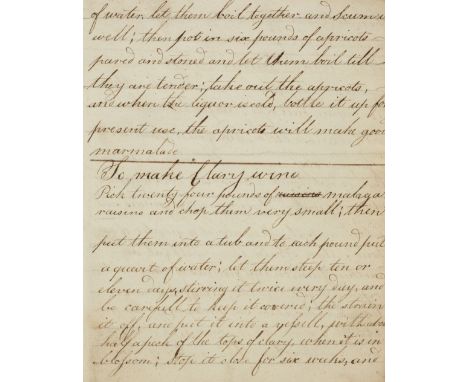 of water, let them boil together and scum it
well; then put in six pounds of apricots
pared and stoned and let them boil till
they are tender; take out the apricots,
and when the liquor is cold, bottle it up for
present use, the apricots will make good
marmalade
To make Clary wine
Pick twenty four pounds of raisins malaga
raisins and chop them very small; then
put them into a tub and to each pound put
a quart of water; let them steep ten or
eleven days, stirring it twice every day, and
be carefull to keep it coverid; the strain
it off, and put it into a vessell, with about
half a peck of the tops of clary, when it is in
blossom; stop it close for six weeks, and